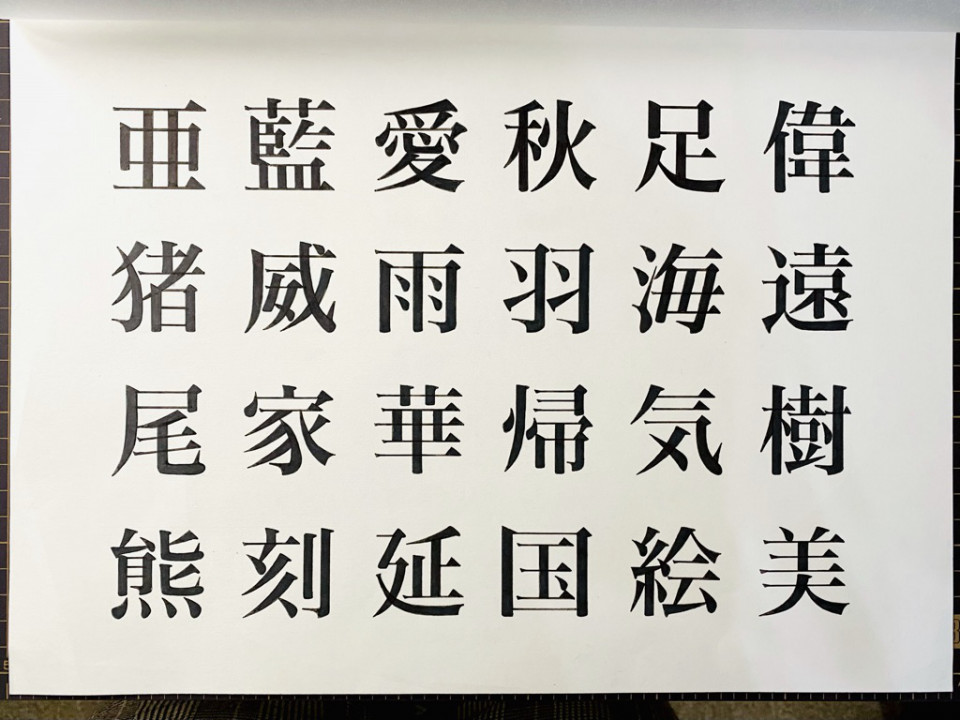 亜藍愛秋足偉
猪威雨羽海遠
尾家華帰気樹
熊刻延国絵美